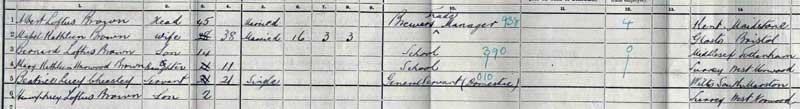 1 Albert Loftus Brown Head 45 Married Brewery Trade Manager 938 4 Kent Maidstone
2 Mabel Kathleen Brown Wife 38 Married 16 3 3 Glos Bristol
3 Leonard Loftus Brown Son 14 School 390 9 Middlesex Tottenham
4 Mary Kathleen Harwood Brown Daughter 11 School Surrey West Norwood
5 Beatrice Lucy Servant 21 Single General Servant (Domestic) 010 Wilts South Marston
6 Humphrey Loftus Brown Son 2 Surrey West Norwood